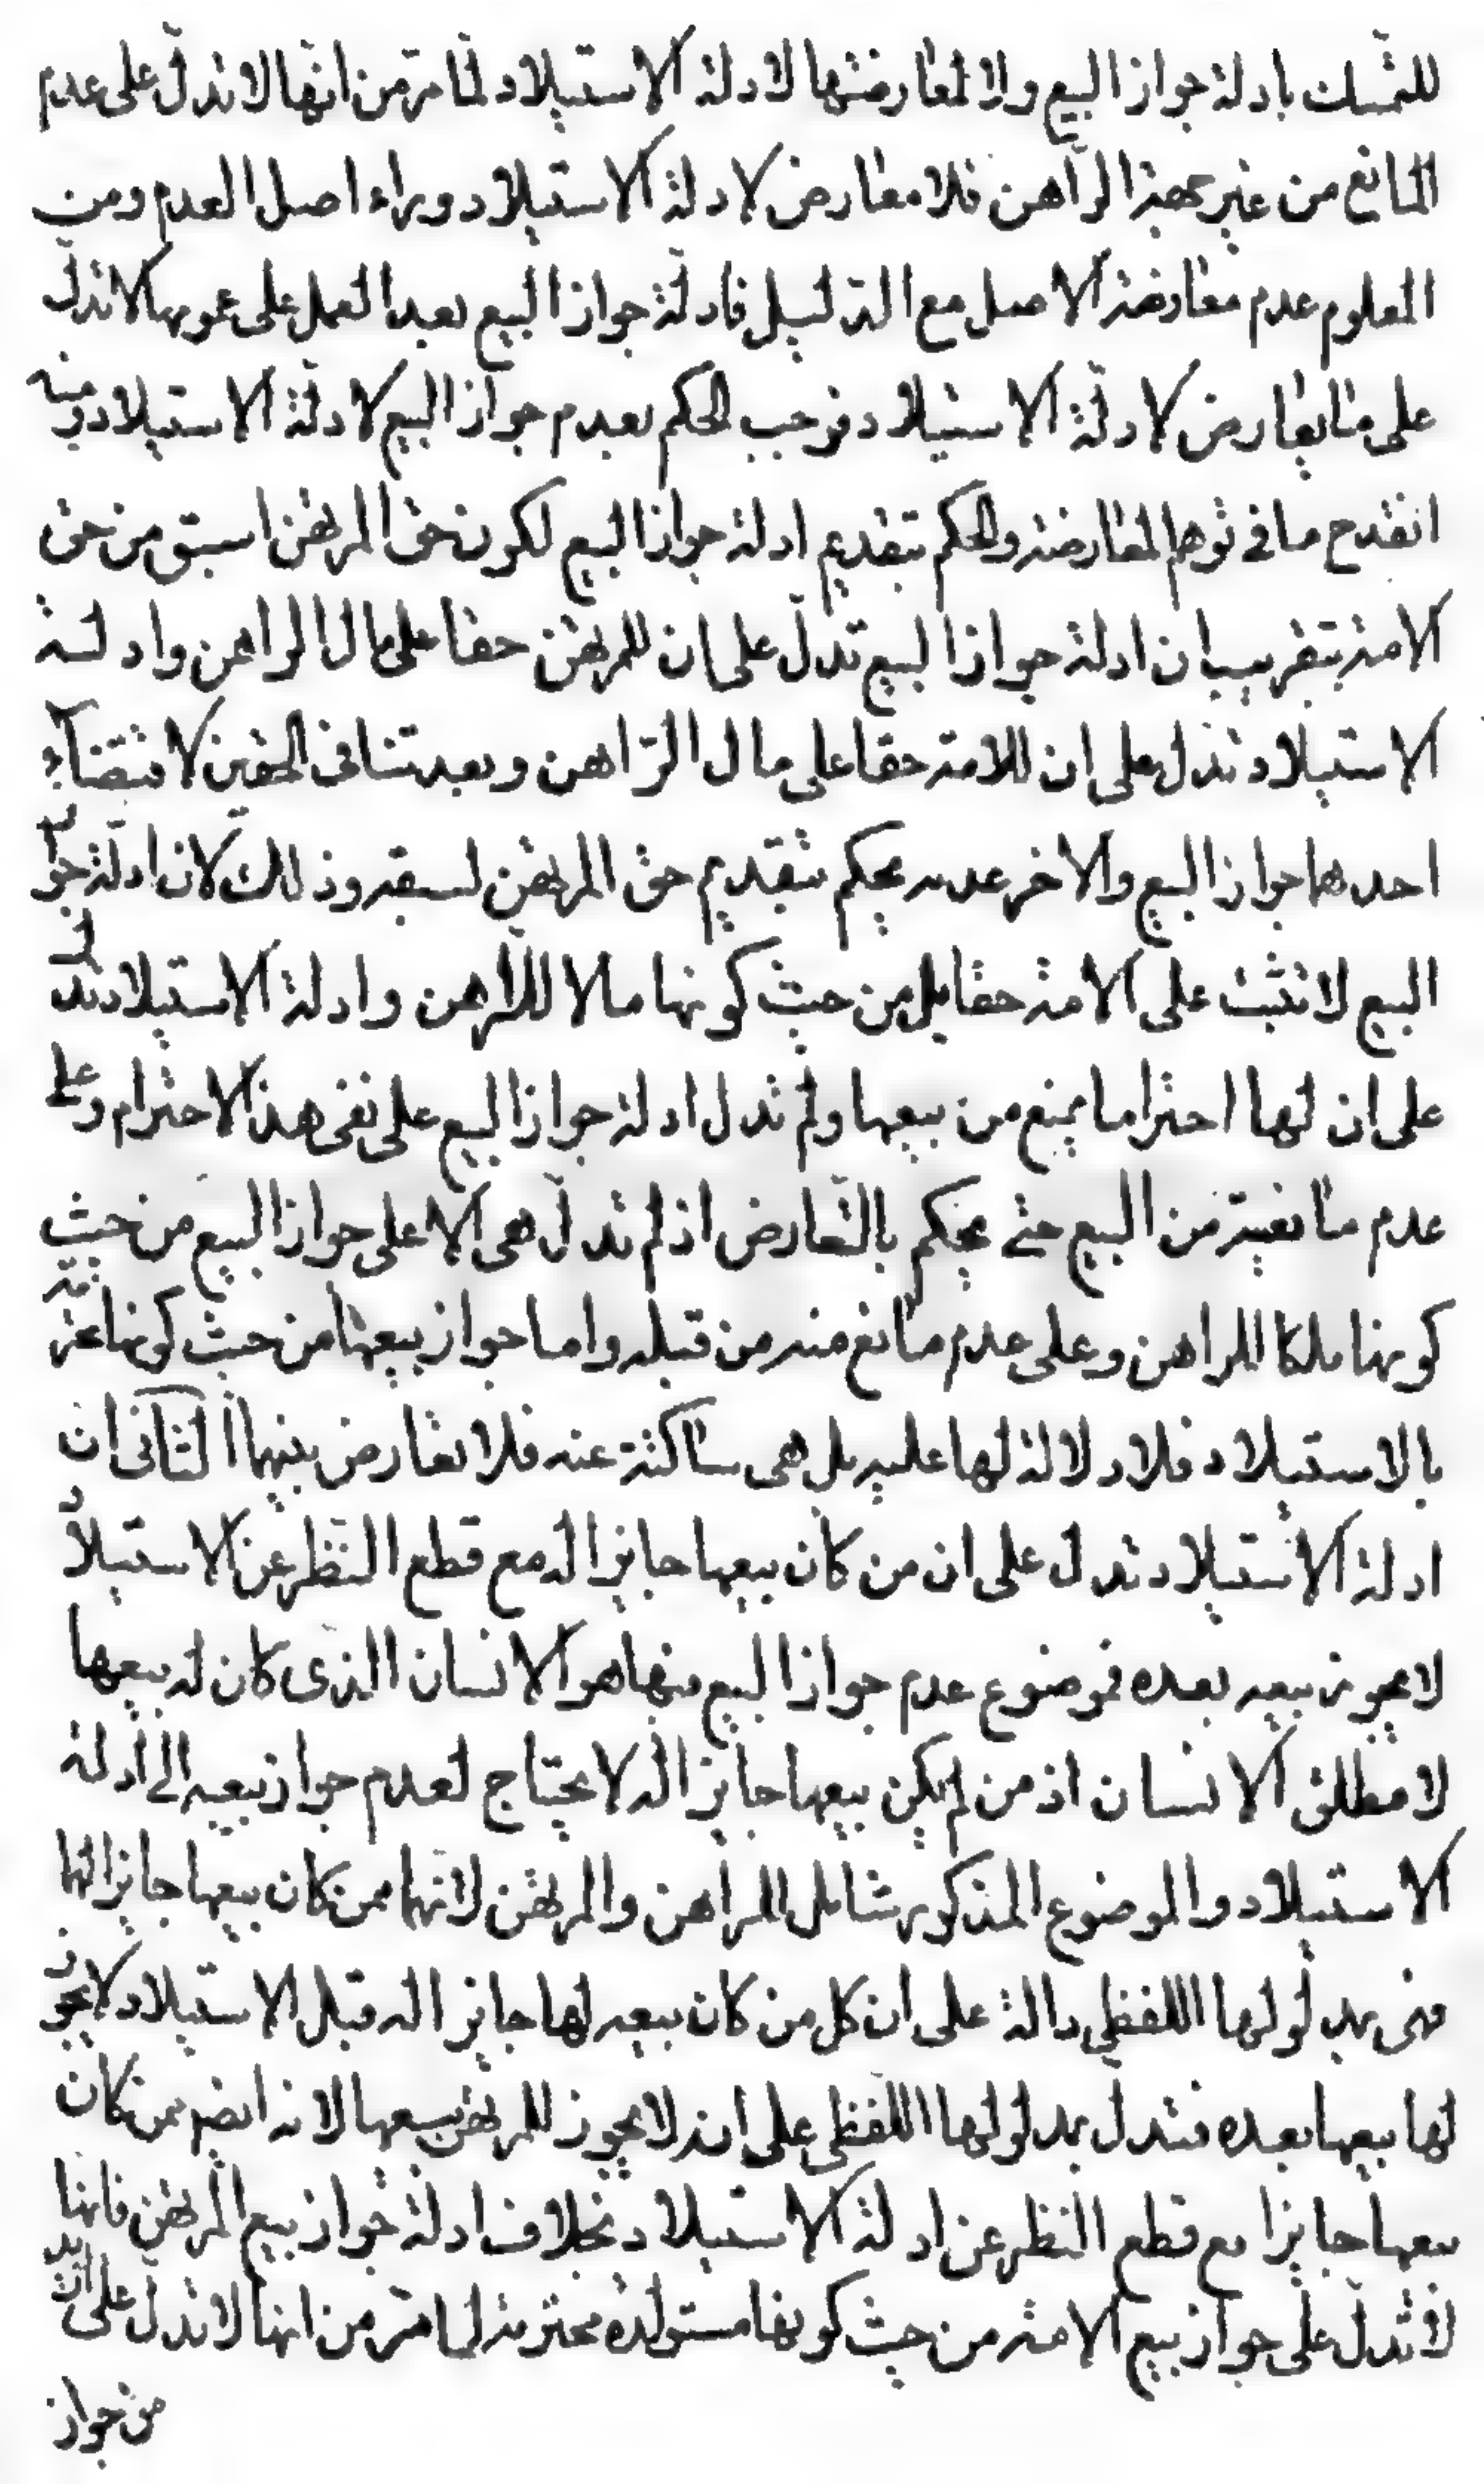 للتمسك بادلة جواز البيع ولا لمعارضتها لادلة الاستيلاد لما مرّ من انّها لا تدلّ على عدم
المانع من غير جهة الرّاهن فلا معارض لادلة الاستيلاد وراء اصل العدم ومن
المعلوم عدم معارضة الاصل مع الدّليل فادلّة جواز البيع بعد العمل على عمومها لا تدلّ
على ما يعارض لادلّة الاستيلاد فوجب الحكم بعدم جواز البيع لادلّة الاستيلاد ومنه
انقدح ما فى توهم المعارضة والحكم بتقديم ادلة جواز البيع لكون حق المرتهن اسبق من حق
الامة بتقريب ان ادلة جواز البيع تدلّ على ان للمرتهن حقا على مال الراهن وادلة
الاستيلاد تدل على ان للامة حقا على مال الرّاهن وبعد تنافى الحقين لاقتضاء
احدهما جواز البيع والاخر عدمه يحكم بتقديم حق المرتهن لسبقه وذلك لان ادلّة جواز
البيع لا تثبت على الامة حقا بل من حيث كونها مالا للرّاهن وادلة الاستيلاد تدل
على ان لها احتراما يمنع من بيعها ولم تدل ادلة جواز البيع على نفى هذا الاحترام وعلى
عدم مانعيته من البيع حتى يحكم بالتّعارض اذ لم تدلّ هى الا على جواز البيع من حيث
كونها ملكا للراهن وعلى عدم مانع منه من قبله واما جواز بيعها من حيث كونها محترمة
بالاستيلاد فلا دلالة لها عليه بل هى ساكتة عنه فلا تعارض بينهما الثانى ان
ادلة الاستيلاد تدل على ان من كان بيعها جايزا له مع قطع النّظر عن الاستيلاد
لا يجوز بيعه بعده فموضوع عدم جواز البيع منها هو الانسان الذى كان له بيعها
لا مطلق الانسان اذ من لم يكن بيعها جايزا له لا يحتاج لعدم جواز بيعه الى ادلة
الاستيلاد والموضوع المذكور شامل للراهن والمرتهن لانهما ممن كان بيعها جايزا لهما
فهى بمدلولها اللفظى دالة على ان كل من كان بيعه لها جايزا له قبل الاستيلاد لا يجوز
لها بيعها بعده فتدلّ بمدلولها اللّفظى على انه لا يجوز للمرتهن بيعها لانه ايضم ممن كان
بيعها جايزا مع قطع النظر عن ادلة الاستيلاد بخلاف ادلة جواز بيع المرتهن فانها
لا تدلّ على جواز بيع الامة من حيث كونها مستولدة محترمة لما مرّ من انها لا تدلّ على ازيد
من جواز